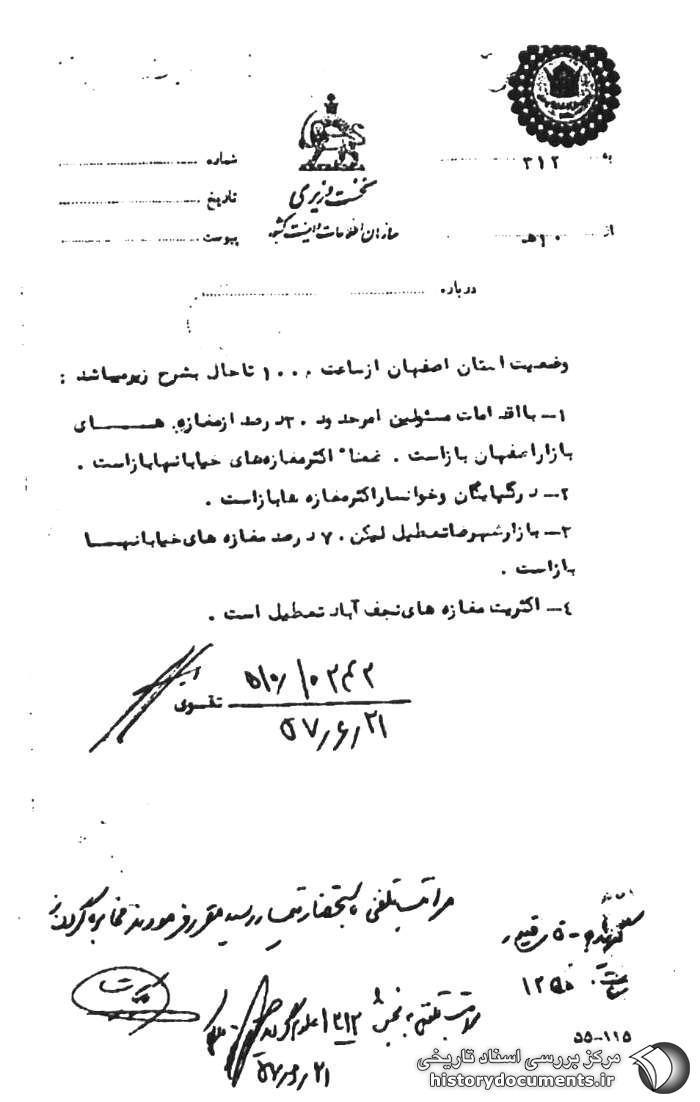 نخست وزیری
سازمان اطلاعات و امنیت کشور
به ۳۱۲
از ۱۰ هـ
شماره
تاریخ
پیوست
درباره
وضعیت استان اصفهان از ساعت ۱۰۰۰ تا حال بشرح زیر میباشد :
۱ــ با اقدامات مسئولین امر حدود ۳۰ درصد از مغازه هــای
بازار اصفهان باز است . ضمنا" اکثر مغازه های خیابانها باز است .
۲ــ در گلپایگان و خوانسار اکثر مغازه ها باز است .
۳ــ بازار شهرضا تعطیل لیکن ۷۰ درصد مغازه های خیابانهــا
باز است .
٤ــ اکثریت مغازه های نجف آباد تعطیل است .
تقــوی
۵۷٫۶٫۲۱
مراتب تلفنی باستحضار تیمسار رسید مقرر فرمودند مخابره گردد
ساعت ۱۲۵۰
مراتب تلفنی به بخش ۳۱۲ اعلام گردید
۵۷٫۶٫۲۱
۵۵-۱۱۵
مرکز بررسی اسناد تاریخی
historydocuments.ir